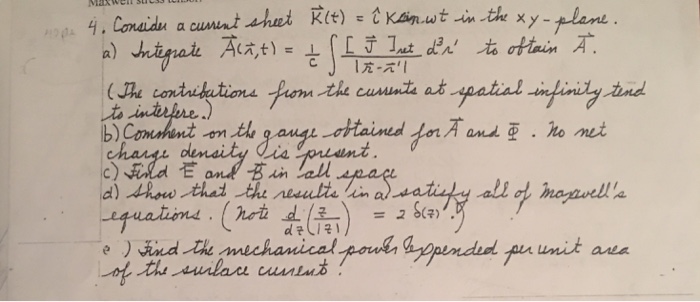 4. Consider a current sheet K⃗(t) = î K sin wt in the xy-plane.
a) Integrate A⃗(r⃗,t) = 1/c ∫ [J⃗]ret d³r' / |r⃗-r⃗'| to obtain A⃗.
(The contributions from the currents at spatial infinity tend
to interfere.)
b) Comment on the gauge obtained for A⃗ and Φ. No net
charge density is present.
c) Find E⃗ and B⃗ in all space
d) Show that the results in a) satisfy all of Maxwell's
equations. (note d/dz (z/|z|) = 2 δ(z).)
e) Find the mechanical power expended per unit area
of the surface current.